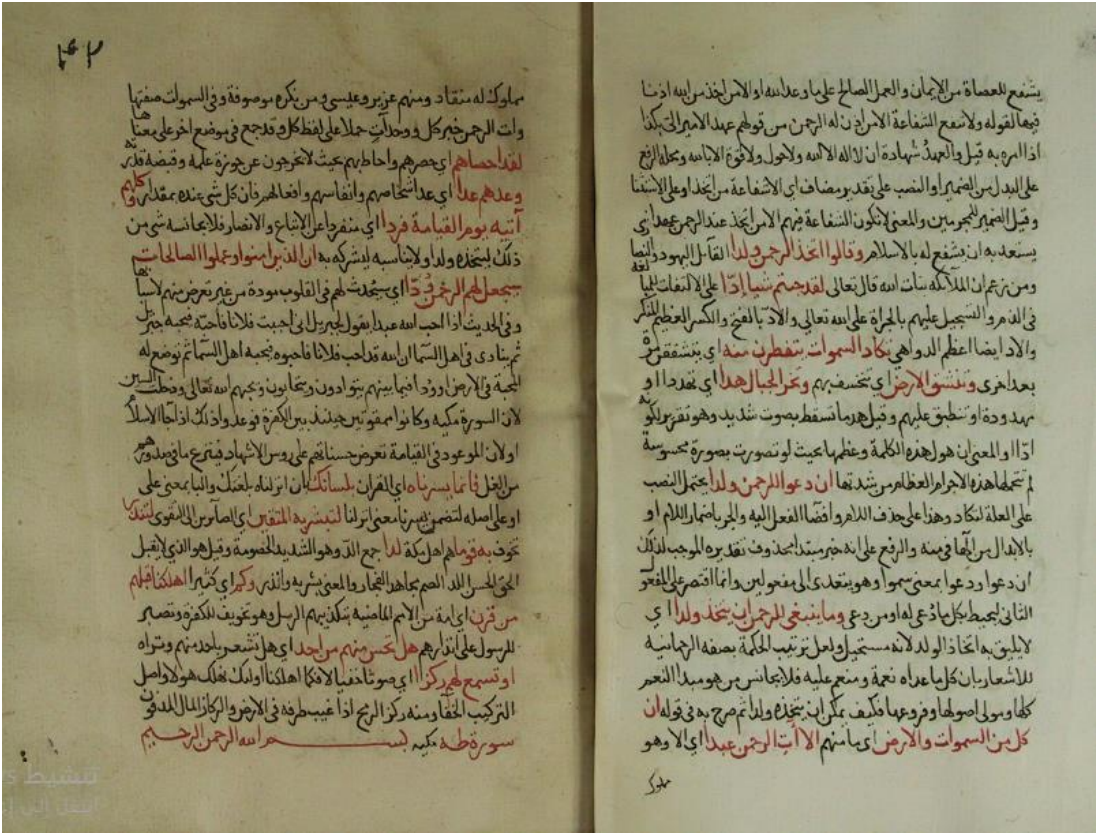 يشفع للعصاة من الايمان والعمل الصالح على ما وعد الله او الا من اتخذ من الله اذنا
فيها لقوله ولا تنفع الشفاعة الا من اذن له الرحمن من قولهم عهد الامير الى بكذا
اذا امره به قيل والعهد شهادة ان لا اله الا الله ولا حول ولا قوة الا بالله ومحله الرفع
على البدل من الضمير او النصب على تقدير مضاف اي الا شفاعة من اتخذ او على الاستثنا
وقيل الضمير للمجرمين والمعنى لا تكون الشفاعة فيهم الا من اتخذ عند الرحمن عهدا
يستعد به ان يشفع له بالاسلام وقالوا اتخذ الرحمن ولدا القائل اليهود والنصا
ومن زعم ان الملائكه بنات الله قال تعالى لقد جئتم شيا ادّا على الالتفات للمبا لغه
في الذم والتسجيل عليهم بالجراة على الله تعالى والاد بالفتح والكسر العظيم المنكر
والاد ايضا اعظم الدواهي تكاد السموات يتفطرن منه اي يتشققن مرة
بعد اخرى وتنشق الارض اي تنخسف بهم وتخر الجبال هدا اي تهد هدا او
مهدودة او تنطبق عليهم وقيل هدما تسقط بصوت شديد وهو تقرير لكونه
ادّا والمعنى ان هول هذه الكلمة وعظمها بحيث لو تصورت بصورة محسوسة
لم تتحملها هذه الاجرام العظام من شدتها ان دعوا للرحمن ولدا يحتمل النصب
على العلة لتكاد وهذا على حذف اللام وافضا الفعل اليه والجر باضمار اللام او
بالابدال من الها في منه والرفع على انه خبر مبتدا محذوف تقديره الموجب لذلك
ان دعوا ودعوا بمعنى سموا وهو يتعدى الى مفعولين وانما اقتصر على المفعو
الثاني ليحيط بكل ما دعي له او من دعي وما ينبغي للرحمن ان يتخذ ولدا اي
لا يليق به اتخاذ الولد لانه مستحيل ولعل ترتيب الحكمة بصفه الرحمانيه
للاشعار بان كل ما عداه نعمة ومنعم عليه فلا يجانس من هو مبدا النعم
كلها ومولى اصولها وفروعها فكيف يمكن ان يتخذه ولدا ثم صرح به في قوله ان
كل من السموات والارض اي ما منهم الا آت الرحمن عبدا اي الا وهو
مملوك
مملوك له منقاد ومنهم عزير وعيسى ومن نكره موصوفة وفي السموات صفتها
وات الرحمن خبر كل ووحد آت حملا على لفظ كل وقد جمع في موضع اخر على معناها
لقد احصاهم اي حصرهم واحاط بهم بحيث لا يخرجون عن حوزة علمه وقبضة قدرته
وعدهم عدا اي عد اشخاصهم وانفاسهم وافعالهم فان كل شي عنده بمقدار وكلهم
آتيه يوم القيامة فردا اي منفردا عن الاتباع والانصار فلا يجانسه شي من
ذلك ليتخذه ولدا ولا يناسبه ليشركه به ان الذين امنوا وعملوا الصالحات
سيجعل لهم الرحمن وُدّا اي سيحدث لهم في القلوب مودة من غير تعرض منهم لاسبابها
وفي الحديث اذا احب الله عبدا يقول لجبريل اني احببت فلانا فاحبّه فيحبه جبريل
ثم ينادى في اهل السما ان الله قد احب فلانا فاحبوه فيحبه اهل السما ثم توضع له
المحبة في الارض او وُدا فيما بينهم يتوادون ويتحابون ويحبهم الله تعالى السين
لان السورة مكيه وكانوا ممقوتين حينئذ بين الكفرة فوعدوا ذلك اذا جا الاسلام
او لان الموعود في القيامة تعرض حسناتهم على روس الاشهاد فينزع ما في صدورهم
من الغل فانما يسرناه اي القران بلسانك بان انزلناه بلغتك والبا بمعنى على
او على اصله لتضمن يسرنا معنى انزلنا لتبشر به المتقين اي الصآئرين الى التقوى لتنذر
تخوف به قوما هم اهل مكة لدا جمع الدّ وهو الشديد الخصومة وقيل هو الذي لا يقبل
الحق الحسن اللد الصم مجاهد الفجار والمعنى بشر به وانذر وكم اي كثيرا اهلكنا قبلهم
من قرن اي امة من الامم الماضيه بتكذيبهم الرسل وهو تخويف للكفرة وتصبير
للرسول على انذارهم هل تحس منهم من احد اي هل تشعر باحد منهم وتراه
او تسمع لهم ركزا اي صوتا خفيا لا فكما اهلكنا اوليك نهلك هولا واصل
التركيب الخفا ومنه ركز الرمح اذا غيب طرفه في الارض والركاز المال المدفون
سورة طه مكيه بسم الله الرحمن الرحيم